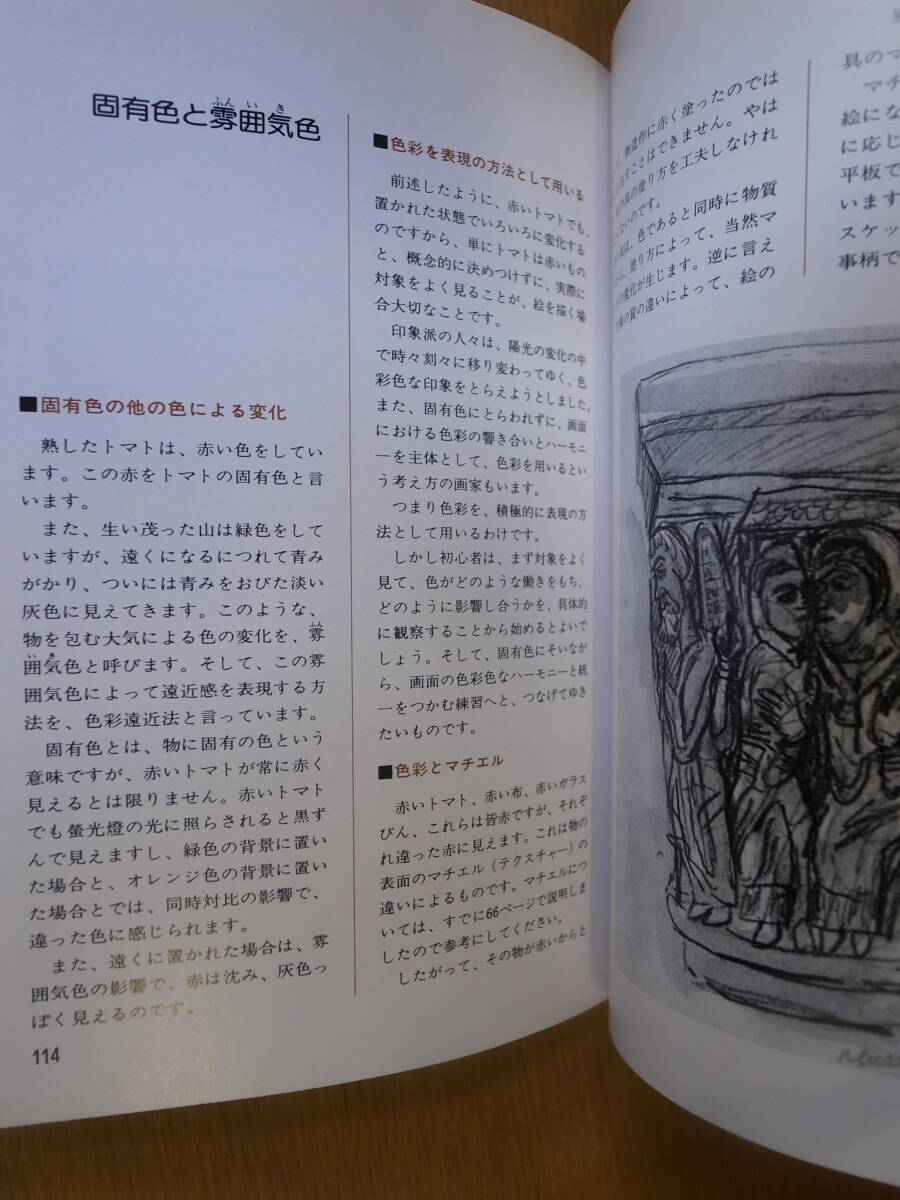 固有色と雰囲気色
ふんいき
■固有色の他の色による変化
熟したトマトは、赤い色をしてい
ます。この赤をトマトの固有色と言
います。
また、生い茂った山は緑色をして
いますが、遠くになるにつれて青み
がかり、ついには青みをおびた淡い
灰色に見えてきます。このような、
物を包む大気による色の変化を、雰
囲気色と呼びます。そして、この雰
囲気色によって遠近感を表現する方
法を、色彩遠近法と言っています。
固有色とは、物に固有の色という
意味ですが、赤いトマトが常に赤く
見えるとは限りません。赤いトマト
でも螢光燈の光に照らされると黒ず
んで見えますし、緑色の背景に置い
た場合と、オレンジ色の背景に置い
た場合とでは、同時対比の影響で、
違った色に感じられます。
また、遠くに置かれた場合は、雰
囲気色の影響で、赤は沈み、灰色っ
ぽく見えるのです。
114
■色彩を表現の方法として用いる
前述したように、赤いトマトでも、
置かれた状態でいろいろに変化する
のですから、単にトマトは赤いもの
と、概念的に決めつけずに、実際に
対象をよく見ることが、絵を描く場
合大切なことです。
印象派の人々は、陽光の変化の中
で時々刻々に移り変わってゆく、色
彩色な印象をとらえようとしました。
また、固有色にとらわれずに、画面
における色彩の響き合いとハーモニ
ーを主体として、色彩を用いるとい
う考え方の画家もいます。
つまり色彩を、積極的に表現の方
法として用いるわけです。
しかし初心者は、まず対象をよく
見て、色がどのような働きをもち、
どのように影響し合うかを、具体的
に観察することから始めるとよいで
しょう。そして、固有色にそいなが
ら、画面の色彩色なハーモニーと統
一をつかむ練習へと、つなげてゆき
たいものです。
■色彩とマチエル
赤いトマト、赤い布、赤いガラス
びん、これらは皆赤ですが、それぞ
れ違った赤に見えます。これは物の
表面のマチエル（テクスチャー）の
違いによるものです。マチエルにつ
いては、すでに66ページで説明しま
したので参考にしてください。
したがって、その物が赤いからと
無造作に赤く塗ったのでは
すことはできません。やは
の具の塗り方を工夫しなけれ
らないのです。
は、色であると同時に物質
ら、塗り方によって、当然マ
の変化が生じます。逆に言え
の質の違いによって、絵の
具のマ
マチ
絵にな
に応じ
平板で
います
スケッ
事柄で